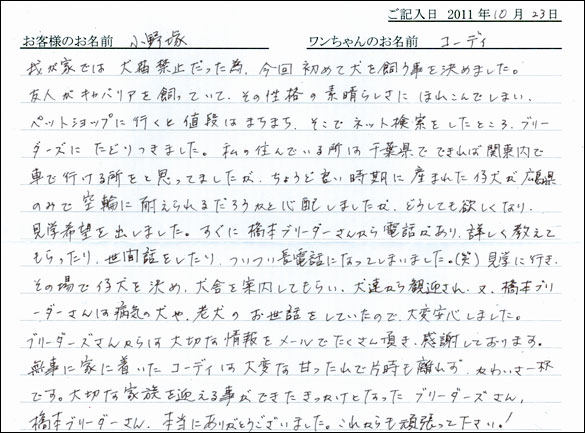 ご記入日 2011年10月23日
お客様のお名前 小野塚 ワンちゃんのお名前 コーディ
我が家では 犬猫禁止だった為、今回 初めて犬を飼う事を決めました。
友人がキャバリアを飼っていて、その性格の素晴らしさに ほれこんでしまい、
ペットショップに行くと値段はまちまち、そこでネット検索をしたところ、ブリー
ダーズに たどりつきました。私の住んでいる所は千葉県で できれば関東内で
車で行ける所をと思ってましたが、ちょうど良い時期に産まれた仔犬が広島県
のみで 空輸に耐えられるだろうかと心配しましたが、どうしても欲しくなり、
見学希望を出しました。すぐに橋本ブリーダーさんから電話があり、詳しく教えて
もらったり、世間話をしたり、ついつい長電話になってしまいました。(笑) 見学に行き、
その場で仔犬を決め、犬舎を案内してもらい、犬達から歓迎され、又、橋本ブリ
ーダーさんは病気の犬や、老犬のお世話をしていたので、大変安心しました。
ブリーダーズさんからは大切な情報をメールでたくさん頂き、感謝しております。
無事に家に着いたコーディは大変な甘ったれで片時も離れず、かわいさ一杯
です。大切な家族を迎える事ができたきっかけとなった ブリーダーズさん、
橋本ブリーダーさん、本当にありがとうございました。これからも頑張って下さい!